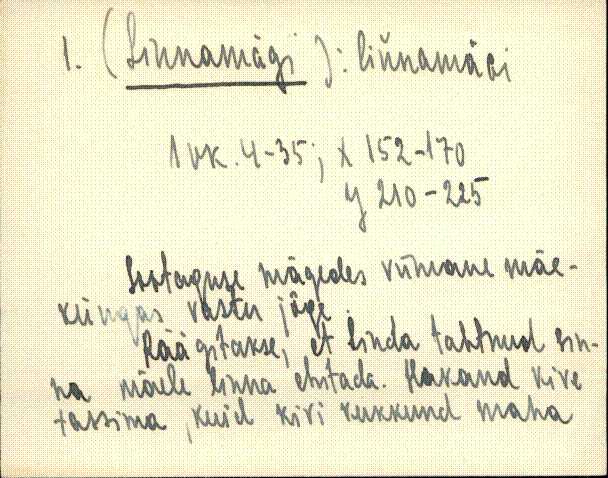 1. (Linnamägi): liñnamäɢi
1 vk. 4-35; X 152-170
Y 210-225
Sootaguse mägedes viimane mäe-
küngas vastu jõge.
Räägitakse, et Linda tahtnud sin-
na mäele linna ehitada. Hakand kive
tassima, kuid kivi kukkund maha